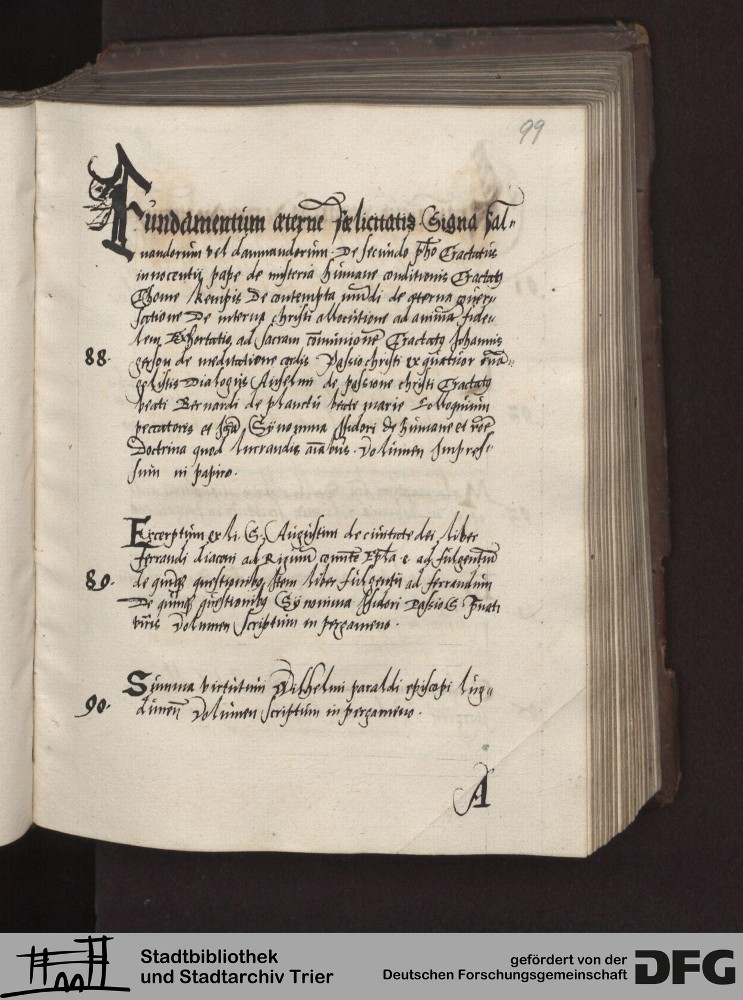 99
Fundamentum æterne fœlicitatis Signa sal-
uandorum vel damnandorum. De secundo Tractatus
innocentij pape de miseria humane conditionis Tractatus
Thome Kempis De contemptu mundi de æterna
De interna christi allocutione ad animā fide-
lem Exhortatio ad sacram cōmunionē Tractatus Johannis
88. gerson de meditatione cordis Passio christi ex quattuor euā-
gelistis Dialogus Anselmi de passione christi Tractatus
beati Bernardi de planctu beate marie Colloquium
peccatoris et Synonima Isidori de humine et rōe
Doctrina quod lucrandis aīabus. Volumen Impres-
sum in papiro.
Excerptum ex li. S. Augustini de ciuitate dei, liber
ferrandi diaconi ad Reginū comitē Ep̄la e. ad fulgentiū
89. de quinq questionibus Item liber fulgentij ad ferrandum
De quinq questionibus Synonima Isidori Passio S.
Volumen scriptum in pergameno.
Summa virtutum Wilhelmi paraldi episcopi lug-
90. dunen̄ Volumen scriptum in pergameno.
A
Stadtbibliothek
und Stadtarchiv Trier
gefördert von der
Deutschen Forschungsgemeinschaft
DFG